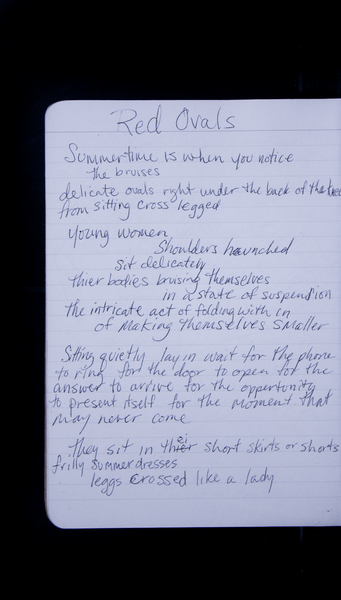 Red Ovals
Summertime is when you notice
the bruises
delicate ovals right under the back of the knee
from sitting cross legged
Young women
Shoulders haunched
Sit delicately
thier bodies bruising themselves
in a state of suspension
the intricate act of folding with in
of making themselves smaller
Sitting quietly lay in wait for the phone
to ring for the door to open for the
answer to arrive for the opportunity
to present itself for the moment that
may never come
They sit in their short skirts or shorts
frilly summer dresses
leggs crossed like a lady